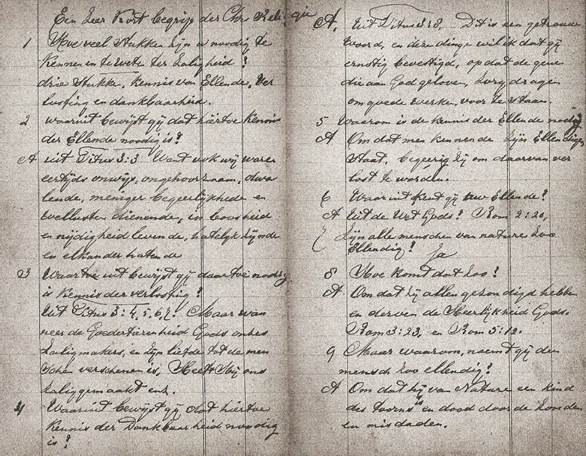 Een Zeer Kort begrijp der Chr Religie
1 Hoe veel stukken zijn u noodig te
Kennen en te weten ter zaligheid?
drie stukke, Kennis van Ellende, Ver
lossing en dankbaarheid.
2 waaruit bewijst gij dat hiertoe Kennis
der Ellende noodig is?
A uit Titus 3:3 Want ook wij waren
eertijds onwijs, ongehoorzaam, dwa
lende, meniger begeerlijkheden en
wellusten dienende, in boosheid
en nijdigheid levende, hatelijk zijnde
en elkander hatende
3 Waaruit bewijst gij daartoe noodig
is Kennis der verlossing?
Uit Titus 3:4,5,6,7. Maar wan
neer de Goedertierenheid Gods onzes
Zaligmakers, en zijn liefde tot de men
schen verschenen is, Heeft Hij ons
zalig gemaakt enz.
4 Waaruit bewijst gij dat hiertoe
Kennis der Dankbaarheid noodig
is?
A. Uit Titus 3:8, Dit is een getrouw
Woord, en deze dinge wil ik dat gij
ernstig bevestigd, op dat de gene
die aan God geloven, zorg dragen
om goede werken, voor te staan.
5 Waarom is de Kennis der Ellende noodig
A Om dat men kennende zijn Ellendige
Staat, begeerig zij om daarvan ver
lost te worden.
6 Waaruit Kent gij uw Ellende?
A Uit de Wet Gods? Rom 3:20,
7 zijn alle mensche van nature zoo
Ellendig? Ja
8 Hoe komt dat zoo?
A Om dat zij allen gezondigd hebben
en derven de Heerlijkheid Gods.
Rom 3:23, en Rom 5:12.
9 Maar waarom, noemt gij den
mensch zoo ellendig?
A Om dat hij van Nature een kind
des Toorns en dood door de zonden
en misdaden.